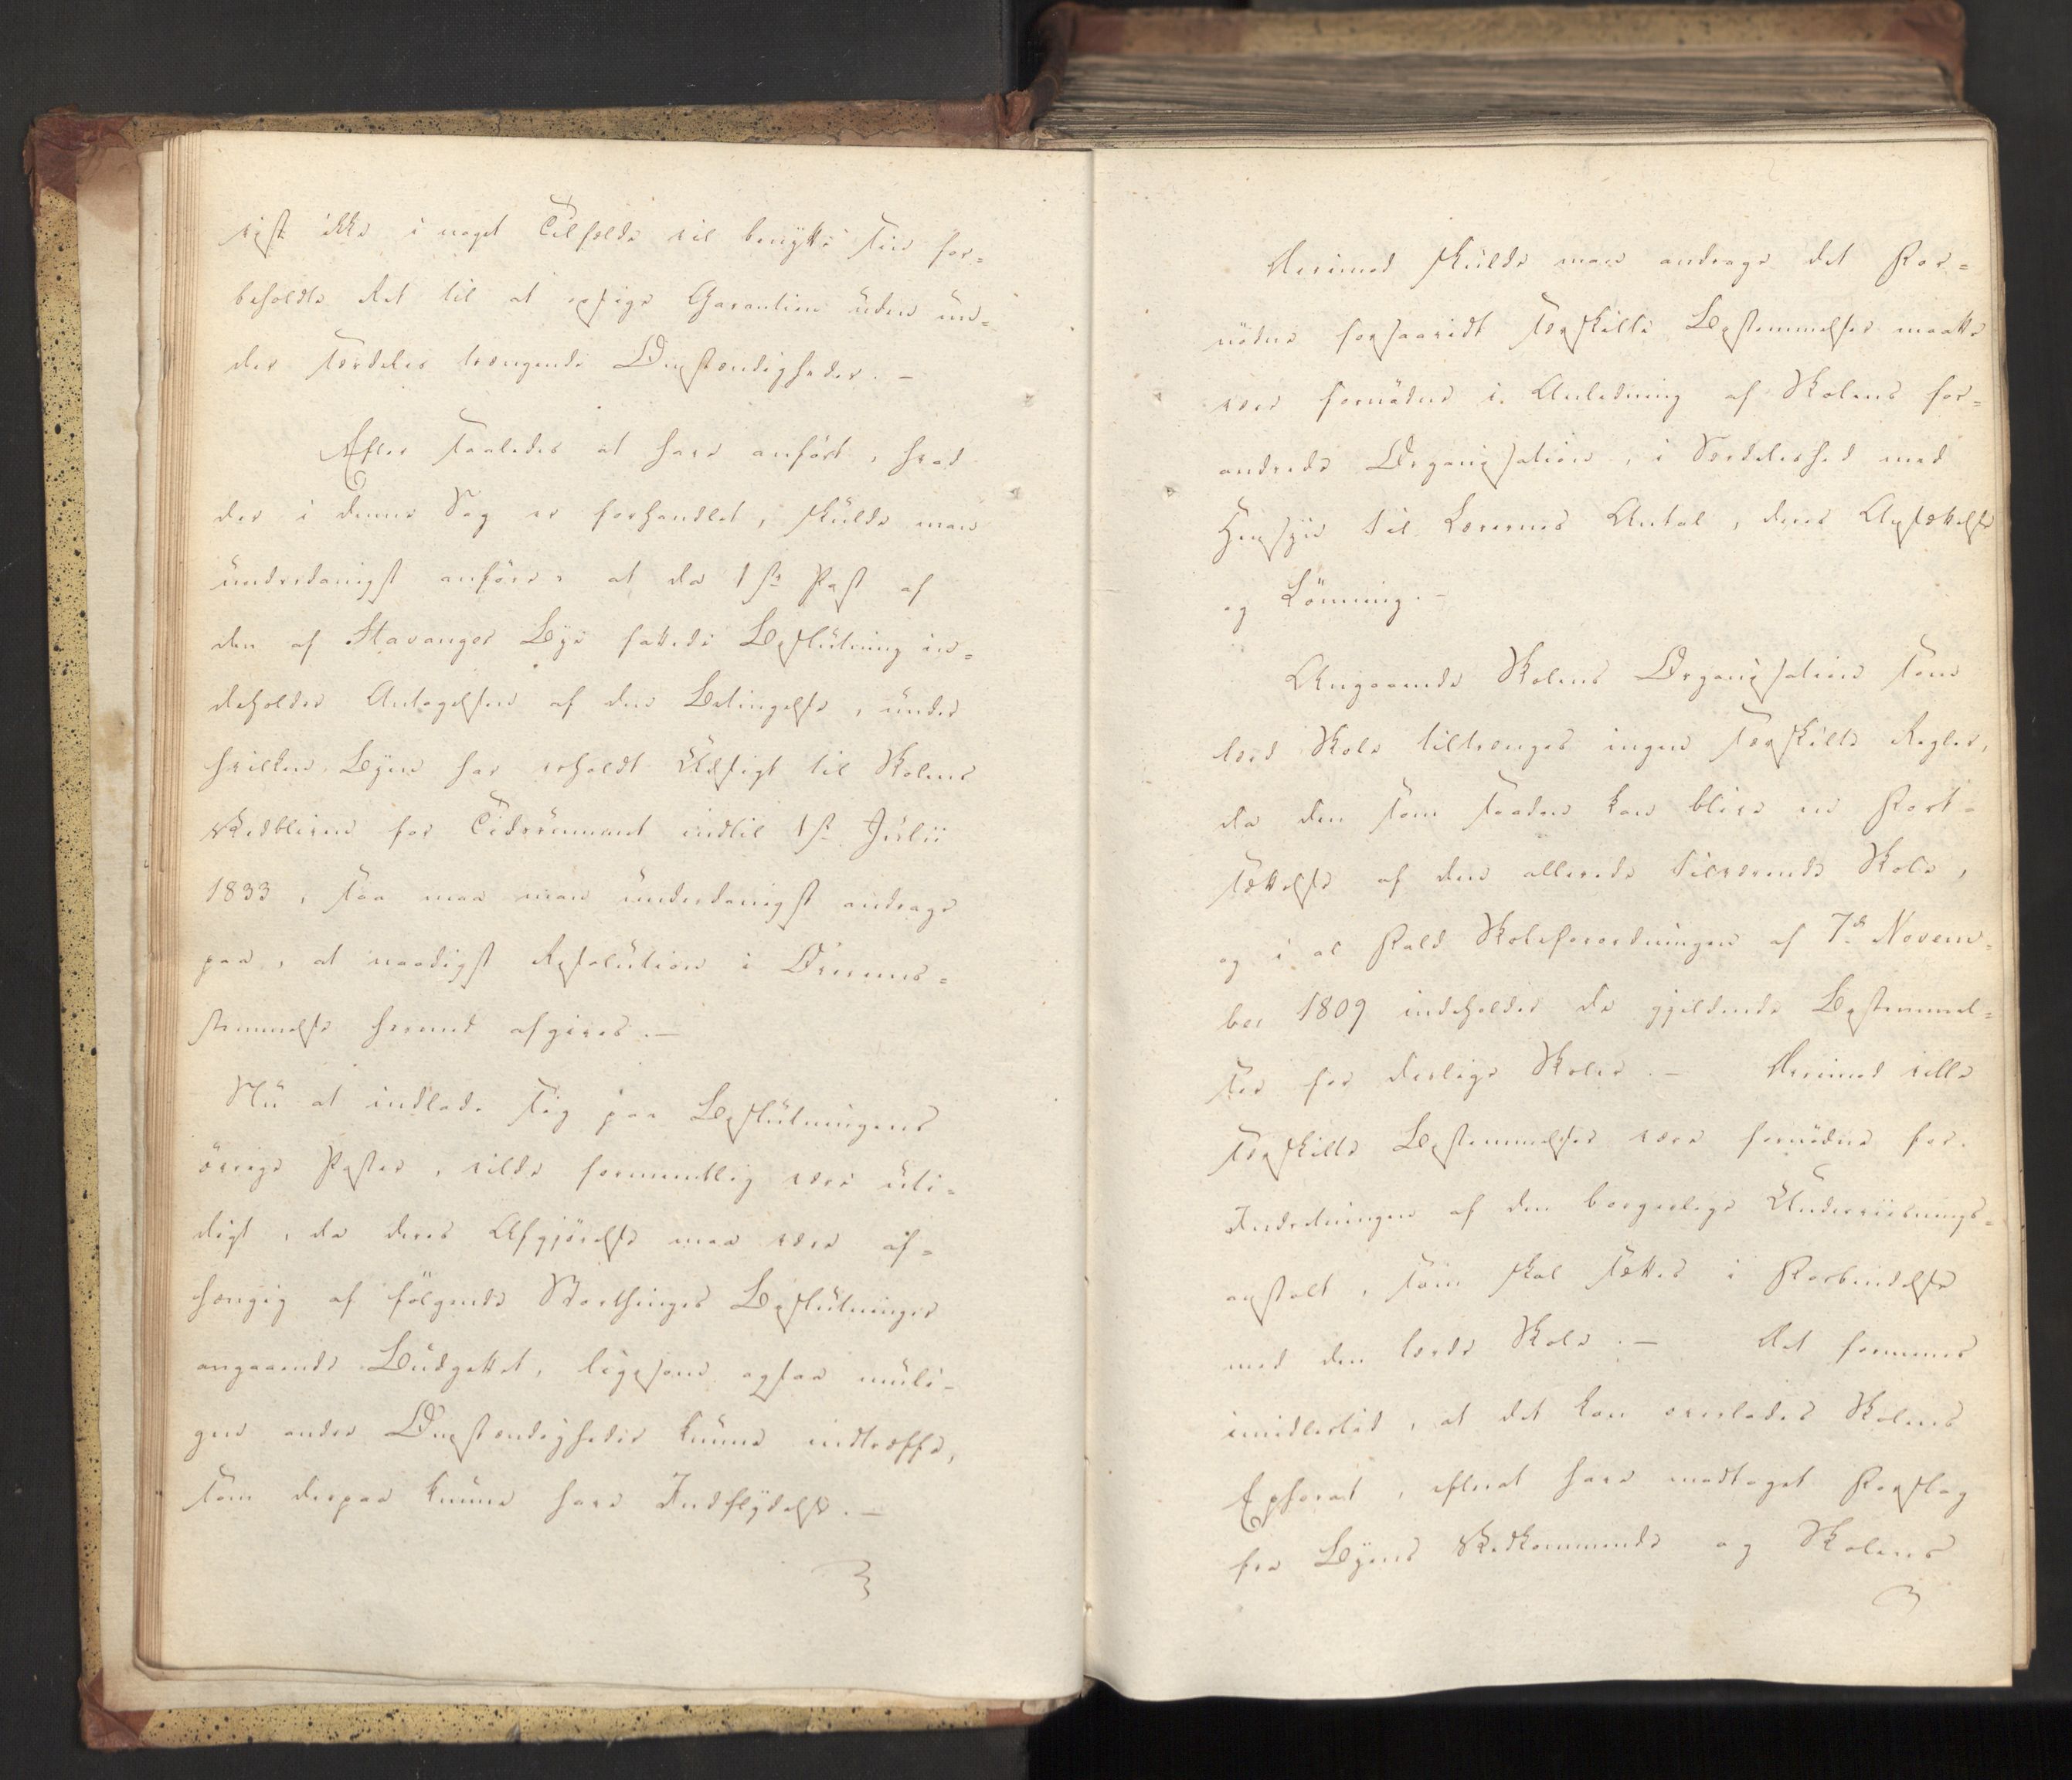 vist ikke i noget Tilfælde vil benytte sin for=
beholdte Ret til at opsige Garantien uden un=
der særdeles trængende Omstændigheder. —
Efter saaledes at have anført, hvad
der i denne Sag er forhandlet, skulde man
underdanigst anføre, at da 1ste Post af
den af Stavanger Bye fattede Beslutning in=
deholder Antagelsen af den Betingelse, under
hvilken Byen har erholdt Udsigt til Skolens
Vedbliven for Tidsrummet indtil 1ste Julii
1833, saa maa man underdanigst andrage
paa, at naadigst Resolution i Overens=
stemmelse hermed afgives. —
Nu at indlade sig paa Beslutningens
övrige Poster, vilde formeentlig være uti=
digt, da deres Afgjörelse maa være af=
hængig af fölgende Storthinges Beslutninger
angaaende Budgettet, ligesom ogsaa muli=
gen andre Omstændigheder kunne indtræffe,
som derpaa kunne have Indflydelse. —
Derimod skulde man andrage det For=
nödne forsaavidt særskilte Bestemmelser maatte
være fornödne i Anledning af Skolens for=
andrede Organisation, i Særdeleshed med
Hensyn til Lærernes Antal, deres Ansættelse
og Lönning. —
Angaaende Skolens Organisation som
lærd Skole tiltrænges ingen særskilte Regler,
da den som saadan kan blive en Fort=
sættelse af den allerede tilværende Skole,
og i al Fald Skoleforordningen af 7de Novem=
ber 1809 indeholder de gjeldende Bestemmel=
ser for deslige Skoler. — Derimod ville
særskilte Bestemmelser være fornödne for
Indretningen af den borgerlige Underviisnings=
anstalt, som skal sættes i Forbindelse
med den lærde Skole. — Det formenes
imidlertid, at det kan overlades Skolens
Ephorat, efterat have modtaget Forslag
fra Byens Vedkommende og Skolens